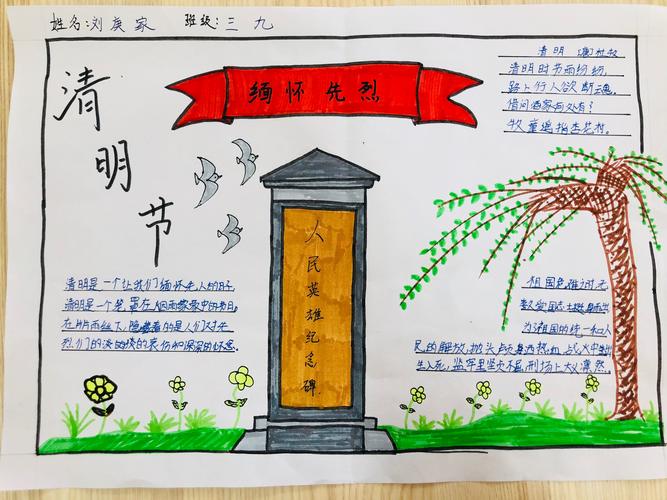 姓名:刘庚家 班级:三 九
缅怀先烈
清明节
清明 [唐]杜牧
清明时节雨纷纷,
路上行人欲断魂。
借问酒家何处有?
牧童遥指杏花村。
人民英雄纪念碑
清明是一个让我们缅怀先人的日子,
清明是一个笼罩在烟雨蒙蒙中的节日。
在雨丝下,隐藏着的是人们对先
烈们的淡淡的哀伤和深深的怀念。
祖国危难时,无
数爱国志士挺身而出
为祖国的统一和人
民的解放,抛头颅洒热血,战火中出
生入死,监牢里坚贞不屈,刑场上大义凛然。